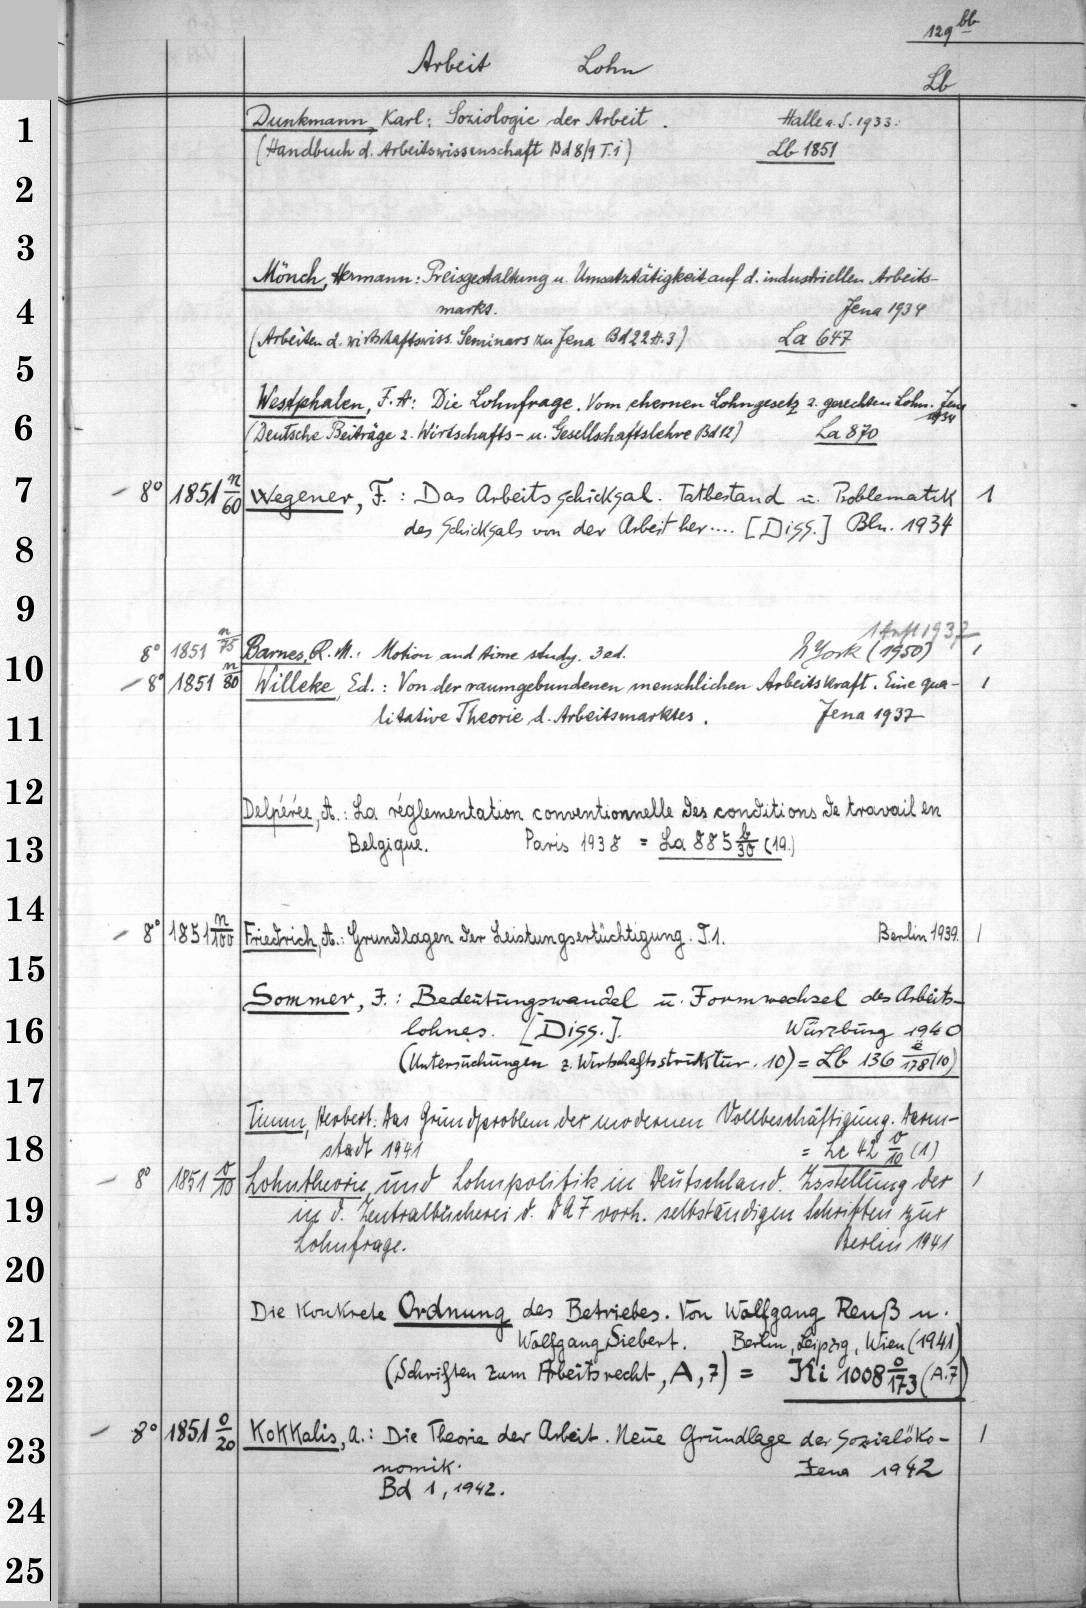 129 bb
Arbeit Lohn Lb
1 Dunkmann, Karl: Soziologie der Arbeit. Halle a. S. 1933.
(Handbuch d. Arbeitswissenschaft Bd 8/9 T. 1) Lb 1851
2
3
Mönch, Hermann: Preisgestaltung u. Umsatztätigkeit auf d. industriellen Arbeits-
4 markt. Jena 1934
(Arbeiten d. wirtschaftswiss. Seminars zu Jena Bd 22 H. 3) La 647
5
Westphalen, F. A: Die Lohnfrage. Vom ehernen Lohngesetz z. gerechten Lohn. Jena 1934
6 (Deutsche Beiträge z. Wirtschafts- u. Gesellschaftslehre Bd 12) La 870
7 – 8° 1851 n/60 Wegener, F.: Das Arbeitsschicksal. Tatbestand u. Problematik 1
8 des Schicksals von der Arbeit her.... [Diss.] Bln. 1934
9
1 Aufl 1937
10 8° 1851 n/75 Barnes, R. M.: Motion and time study. 3 ed. N York (1950) 1
– 8° 1851 n/80 Willeke, Ed.: Von der raumgebundenen menschlichen Arbeitskraft. Eine qua- 1
11 litative Theorie d. Arbeitsmarktes. Jena 1937
12
Delpérée, A.: La réglementation conventionnelle des conditions de travail en
13 Belgique. Paris 1938 = La 885 b/30 (19.)
14
– 8° 1851 n/100 Friedrich, A.: Grundlagen der Leistungsertüchtigung. T. 1. Berlin 1939. 1
15
Sommer, F.: Bedeutungswandel u. Formwechsel des Arbeits-
16 lohnes. [Diss.]. Würzburg 1940
(Untersuchungen z. Wirtschaftsstruktur. 10) = Lb 136 e/178 (10)
17
Timm, Herbert: Das Grundproblem der modernen Vollbeschäftigung. Darm-
18 stadt 1941 = Lc 42 v/10 (1)
– 8° 1851 o/10 Lohntheorie und Lohnpolitik in Deutschland. Zsstellung der 1
19 in d. Zentralbücherei d. DAF vorh. selbständigen Schriften zur
Lohnfrage. Berlin 1941
20
Die Konkrete Ordnung des Betriebes. Von Wolfgang Reuß u.
21 Wolfgang Siebert. Berlin, Leipzig, Wien (1941)
22 (Schriften zum Arbeitsrecht, A, 7) = Ki 1008 o/173 (A. 7)
23 – 8° 1851 o/20 Kokkalis, A.: Die Theorie der Arbeit. Neue Grundlage der Sozialöko- 1
nomik. Jena 1942
24 Bd 1, 1942.
25